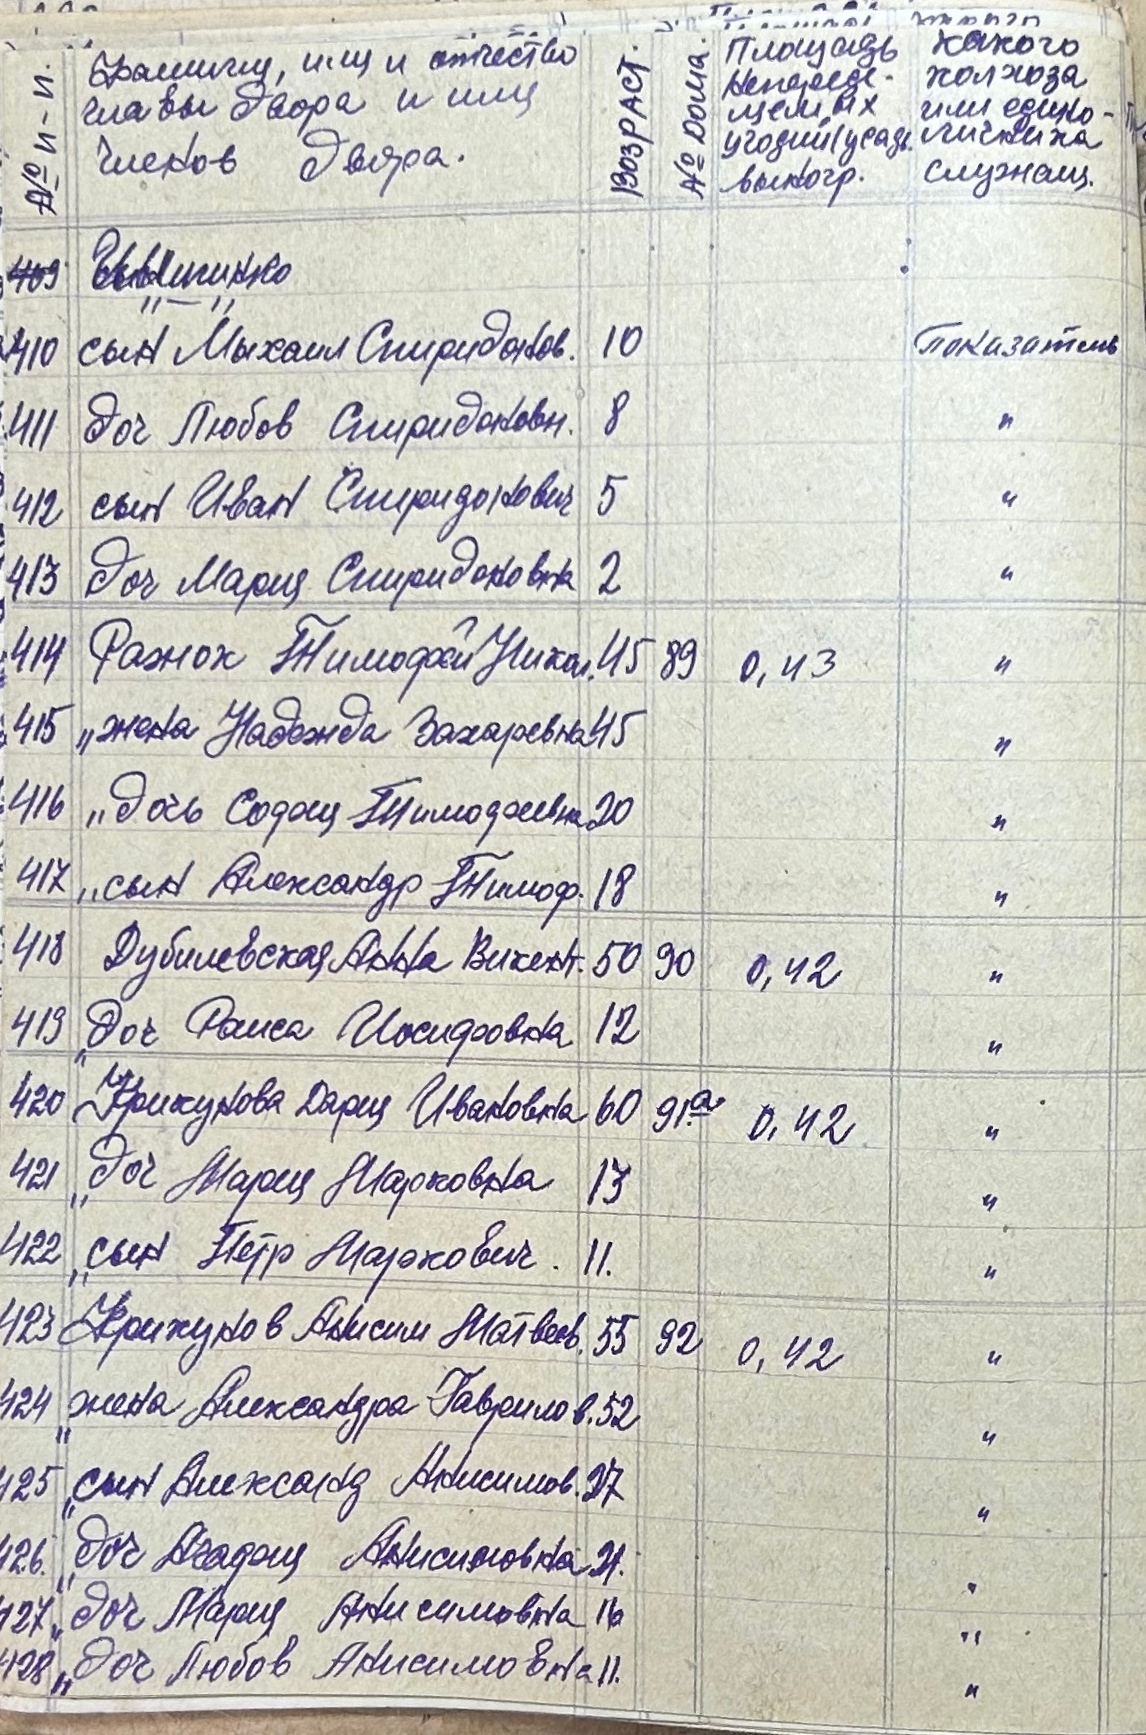 № п-п. Фамилия, имя и отчество главы двора и имя членов двора. ВОЗРАСТ. № Дома. Площадь угодий (усадь. виногр. какого колхоза или едино-личника служащ.
409
„ — „
410 сын Михаил Спиридонов. 10 Показатель
411 доч Любов Спиридоновн. 8 "
412 сын Иван Спиридонович 5 "
413 доч Мария Спиридоновна 2 "
414 Тимофей Никол. 45 89 0,43 "
415 „жена Надежда Захаревна 45 "
416 „дочь Тимофеевна 20 "
417 „сын Александр Тимоф. 18 "
418 Дубилевская Анна Викент. 50 90 0,42 "
419 „доч Раиса Иосифовна 12 "
420 Крикунова Дария Ивановна 60 91а 0,42 "
421 „доч Мария Марковна 13 "
422 „сын Пётр Маркович. 11. "
423 Крикунов Анисим Матвеев. 55 92 0,42 "
424 „жена Александра Гаврилов. 52 "
425 „сын Александ Анисимов. 27 "
426. „доч Анисимовна 21. "
427 „доч Мария Анисимовна 16 "
428 „доч Любов Анисимовна 11. "